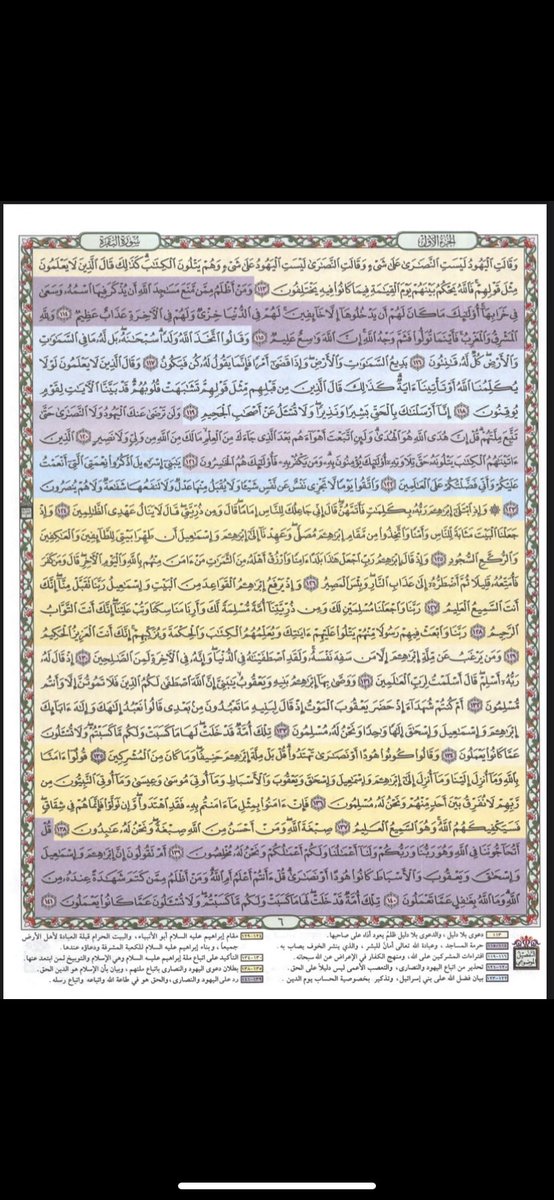 الجزء الأول
سورة البقرة
وَقَالَتِ الْيَهُودُ لَيْسَتِ النَّصَارَىٰ عَلَىٰ شَيْءٍ وَقَالَتِ النَّصَارَىٰ لَيْسَتِ الْيَهُودُ عَلَىٰ شَيْءٍ وَهُمْ يَتْلُونَ الْكِتَابَ كَذَٰلِكَ قَالَ الَّذِينَ لَا يَعْلَمُونَ
مِثْلَ قَوْلِهِمْ فَاللَّهُ يَحْكُمُ بَيْنَهُمْ يَوْمَ الْقِيَامَةِ فِيمَا كَانُوا فِيهِ يَخْتَلِفُونَ ١١٣ وَمَنْ أَظْلَمُ مِمَّن مَّنَعَ مَسَاجِدَ اللَّهِ أَن يُذْكَرَ فِيهَا اسْمُهُ وَسَعَىٰ
فِي خَرَابِهَا أُولَٰئِكَ مَا كَانَ لَهُمْ أَن يَدْخُلُوهَا إِلَّا خَائِفِينَ لَهُمْ فِي الدُّنْيَا خِزْيٌ وَلَهُمْ فِي الْآخِرَةِ عَذَابٌ عَظِيمٌ ١١٤ وَلِلَّهِ
الْمَشْرِقُ وَالْمَغْرِبُ فَأَيْنَمَا تُوَلُّوا فَثَمَّ وَجْهُ اللَّهِ إِنَّ اللَّهَ وَاسِعٌ عَلِيمٌ ١١٥ وَقَالُوا اتَّخَذَ اللَّهُ وَلَدًا سُبْحَانَهُ بَل لَّهُ مَا فِي السَّمَاوَاتِ
وَالْأَرْضِ كُلٌّ لَّهُ قَانِتُونَ ١١٦ بَدِيعُ السَّمَاوَاتِ وَالْأَرْضِ وَإِذَا قَضَىٰ أَمْرًا فَإِنَّمَا يَقُولُ لَهُ كُن فَيَكُونُ ١١٧ وَقَالَ الَّذِينَ لَا يَعْلَمُونَ لَوْلَا
يُكَلِّمُنَا اللَّهُ أَوْ تَأْتِينَا آيَةٌ كَذَٰلِكَ قَالَ الَّذِينَ مِن قَبْلِهِم مِّثْلَ قَوْلِهِمْ تَشَابَهَتْ قُلُوبُهُمْ قَدْ بَيَّنَّا الْآيَاتِ لِقَوْمٍ
يُوقِنُونَ ١١٨ إِنَّا أَرْسَلْنَاكَ بِالْحَقِّ بَشِيرًا وَنَذِيرًا وَلَا تُسْأَلُ عَنْ أَصْحَابِ الْجَحِيمِ ١١٩ وَلَن تَرْضَىٰ عَنكَ الْيَهُودُ وَلَا النَّصَارَىٰ حَتَّىٰ
تَتَّبِعَ مِلَّتَهُمْ قُلْ إِنَّ هُدَى اللَّهِ هُوَ الْهُدَىٰ وَلَئِنِ اتَّبَعْتَ أَهْوَاءَهُم بَعْدَ الَّذِي جَاءَكَ مِنَ الْعِلْمِ مَا لَكَ مِنَ اللَّهِ مِن وَلِيٍّ وَلَا نَصِيرٍ ١٢٠ الَّذِينَ
آتَيْنَاهُمُ الْكِتَابَ يَتْلُونَهُ حَقَّ تِلَاوَتِهِ أُولَٰئِكَ يُؤْمِنُونَ بِهِ وَمَن يَكْفُرْ بِهِ فَأُولَٰئِكَ هُمُ الْخَاسِرُونَ ١٢١ يَا بَنِي إِسْرَائِيلَ اذْكُرُوا نِعْمَتِيَ الَّتِي أَنْعَمْتُ
عَلَيْكُمْ وَأَنِّي فَضَّلْتُكُمْ عَلَى الْعَالَمِينَ ١٢٢ وَاتَّقُوا يَوْمًا لَّا تَجْزِي نَفْسٌ عَن نَّفْسٍ شَيْئًا وَلَا يُقْبَلُ مِنْهَا عَدْلٌ وَلَا تَنفَعُهَا شَفَاعَةٌ وَلَا هُمْ يُنصَرُونَ
١٢٣ ۞ وَإِذِ ابْتَلَىٰ إِبْرَاهِيمَ رَبُّهُ بِكَلِمَاتٍ فَأَتَمَّهُنَّ قَالَ إِنِّي جَاعِلُكَ لِلنَّاسِ إِمَامًا قَالَ وَمِن ذُرِّيَّتِي قَالَ لَا يَنَالُ عَهْدِي الظَّالِمِينَ ١٢٤ وَإِذْ
جَعَلْنَا الْبَيْتَ مَثَابَةً لِّلنَّاسِ وَأَمْنًا وَاتَّخِذُوا مِن مَّقَامِ إِبْرَاهِيمَ مُصَلًّى وَعَهِدْنَا إِلَىٰ إِبْرَاهِيمَ وَإِسْمَاعِيلَ أَن طَهِّرَا بَيْتِيَ لِلطَّائِفِينَ وَالْعَاكِفِينَ
وَالرُّكَّعِ السُّجُودِ ١٢٥ وَإِذْ قَالَ إِبْرَاهِيمُ رَبِّ اجْعَلْ هَٰذَا بَلَدًا آمِنًا وَارْزُقْ أَهْلَهُ مِنَ الثَّمَرَاتِ مَنْ آمَنَ مِنْهُم بِاللَّهِ وَالْيَوْمِ الْآخِرِ قَالَ وَمَن كَفَرَ
فَأُمَتِّعُهُ قَلِيلًا ثُمَّ أَضْطَرُّهُ إِلَىٰ عَذَابِ النَّارِ وَبِئْسَ الْمَصِيرُ ١٢٦ وَإِذْ يَرْفَعُ إِبْرَاهِيمُ الْقَوَاعِدَ مِنَ الْبَيْتِ وَإِسْمَاعِيلُ رَبَّنَا تَقَبَّلْ مِنَّا إِنَّكَ
أَنتَ السَّمِيعُ الْعَلِيمُ ١٢٧ رَبَّنَا وَاجْعَلْنَا مُسْلِمَيْنِ لَكَ وَمِن ذُرِّيَّتِنَا أُمَّةً مُّسْلِمَةً لَّكَ وَأَرِنَا مَنَاسِكَنَا وَتُبْ عَلَيْنَا إِنَّكَ أَنتَ التَّوَّابُ
الرَّحِيمُ ١٢٨ رَبَّنَا وَابْعَثْ فِيهِمْ رَسُولًا مِّنْهُمْ يَتْلُو عَلَيْهِمْ آيَاتِكَ وَيُعَلِّمُهُمُ الْكِتَابَ وَالْحِكْمَةَ وَيُزَكِّيهِمْ إِنَّكَ أَنتَ الْعَزِيزُ الْحَكِيمُ
١٢٩ وَمَن يَرْغَبُ عَن مِّلَّةِ إِبْرَاهِيمَ إِلَّا مَن سَفِهَ نَفْسَهُ وَلَقَدِ اصْطَفَيْنَاهُ فِي الدُّنْيَا وَإِنَّهُ فِي الْآخِرَةِ لَمِنَ الصَّالِحِينَ ١٣٠ إِذْ قَالَ لَهُ
رَبُّهُ أَسْلِمْ قَالَ أَسْلَمْتُ لِرَبِّ الْعَالَمِينَ ١٣١ وَوَصَّىٰ بِهَا إِبْرَاهِيمُ بَنِيهِ وَيَعْقُوبُ يَا بَنِيَّ إِنَّ اللَّهَ اصْطَفَىٰ لَكُمُ الدِّينَ فَلَا تَمُوتُنَّ إِلَّا وَأَنتُم
مُّسْلِمُونَ ١٣٢ أَمْ كُنتُمْ شُهَدَاءَ إِذْ حَضَرَ يَعْقُوبَ الْمَوْتُ إِذْ قَالَ لِبَنِيهِ مَا تَعْبُدُونَ مِن بَعْدِي قَالُوا نَعْبُدُ إِلَٰهَكَ وَإِلَٰهَ آبَائِكَ
إِبْرَاهِيمَ وَإِسْمَاعِيلَ وَإِسْحَاقَ إِلَٰهًا وَاحِدًا وَنَحْنُ لَهُ مُسْلِمُونَ ١٣٣ تِلْكَ أُمَّةٌ قَدْ خَلَتْ لَهَا مَا كَسَبَتْ وَلَكُم مَّا كَسَبْتُمْ وَلَا تُسْأَلُونَ
عَمَّا كَانُوا يَعْمَلُونَ ١٣٤ وَقَالُوا كُونُوا هُودًا أَوْ نَصَارَىٰ تَهْتَدُوا قُلْ بَلْ مِلَّةَ إِبْرَاهِيمَ حَنِيفًا وَمَا كَانَ مِنَ الْمُشْرِكِينَ ١٣٥ قُولُوا آمَنَّا
بِاللَّهِ وَمَا أُنزِلَ إِلَيْنَا وَمَا أُنزِلَ إِلَىٰ إِبْرَاهِيمَ وَإِسْمَاعِيلَ وَإِسْحَاقَ وَيَعْقُوبَ وَالْأَسْبَاطِ وَمَا أُوتِيَ مُوسَىٰ وَعِيسَىٰ وَمَا أُوتِيَ النَّبِيُّونَ مِن
رَّبِّهِمْ لَا نُفَرِّقُ بَيْنَ أَحَدٍ مِّنْهُمْ وَنَحْنُ لَهُ مُسْلِمُونَ ١٣٦ فَإِنْ آمَنُوا بِمِثْلِ مَا آمَنتُم بِهِ فَقَدِ اهْتَدَوا وَّإِن تَوَلَّوْا فَإِنَّمَا هُمْ فِي شِقَاقٍ
فَسَيَكْفِيكَهُمُ اللَّهُ وَهُوَ السَّمِيعُ الْعَلِيمُ ١٣٧ صِبْغَةَ اللَّهِ وَمَنْ أَحْسَنُ مِنَ اللَّهِ صِبْغَةً وَنَحْنُ لَهُ عَابِدُونَ ١٣٨ قُلْ
أَتُحَاجُّونَنَا فِي اللَّهِ وَهُوَ رَبُّنَا وَرَبُّكُمْ وَلَنَا أَعْمَالُنَا وَلَكُمْ أَعْمَالُكُمْ وَنَحْنُ لَهُ مُخْلِصُونَ ١٣٩ أَمْ تَقُولُونَ إِنَّ إِبْرَاهِيمَ وَإِسْمَاعِيلَ
وَإِسْحَاقَ وَيَعْقُوبَ وَالْأَسْبَاطَ كَانُوا هُودًا أَوْ نَصَارَىٰ قُلْ أَأَنتُمْ أَعْلَمُ أَمِ اللَّهُ وَمَنْ أَظْلَمُ مِمَّن كَتَمَ شَهَادَةً عِندَهُ مِنَ
اللَّهِ وَمَا اللَّهُ بِغَافِلٍ عَمَّا تَعْمَلُونَ ١٤٠ تِلْكَ أُمَّةٌ قَدْ خَلَتْ لَهَا مَا كَسَبَتْ وَلَكُم مَّا كَسَبْتُمْ وَلَا تُسْأَلُونَ عَمَّا كَانُوا يَعْمَلُونَ ١٤١
٦
١١٣ دعوى بلا دليل ، والدعوى بلا دليل ظلمٌ يعود أذاه على صاحبها.
حرمة المساجد ، وعبادة الله تعالى أمانٌ للبشر ، والذي ينشر الخوف يصاب به .
افتراءات المشركين على الله، ومنهج الكفار في الإعراض عن الله سبحانه.
تحذير من اتباع اليهود والنصارى، والتعصب الأعمى ليس دليلاً على الحق.
بيان فضل الله على بني إسرائيل، وتذكير بخصوصية الحساب يوم الدين .
مقام إبراهيم عليه السلام أبو الأنبياء ، والبيت الحرام قبلة العبادة لأهل الأرض
جميعاً ، و بناء إبراهيم عليه السلام للكعبة المشرفة ودعاؤه عندها.
التأكيد على اتباع ملة إبراهيم عليه السلام وهي الإسلام والتوبيخ لمن ابتعد عنها.
بطلان دعوى اليهود والنصارى باتباع ملتهم ، وبيان بأن الإسلام هو الدين الحق.
رد على اليهود والنصارى، والحق هو في طاعة الله واتباعه واتباع رسله .